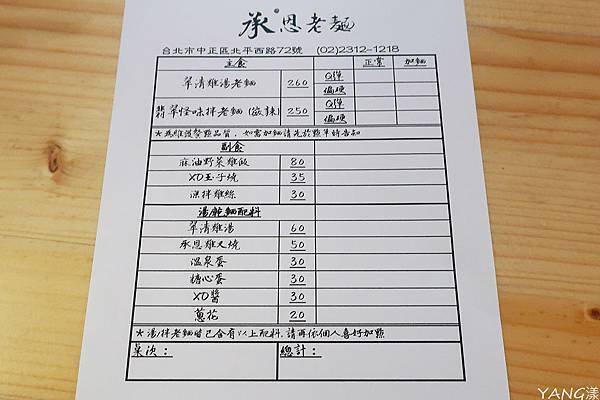 承恩老麵
台北市中正區北平西路72號 (02)2312-1218
主食 正常 加麵
翠清雞湯老麵 260 Q彈
偏硬
翡翠怪味拌老麵(微辣) 250 Q彈
偏硬
*為維護餐點品質,如需加麵請先於點單時告知
副食
麻油野菜雞飯 80
XO玉子燒 35
涼拌雞絲 30
湯/乾麵配料
翠清雞湯 60
承恩雞叉燒 50
溫泉蛋 30
糖心蛋 30
XO醬 30
蔥花 20
*湯/拌老麵皆已含有以上配料,請再依個人喜好加點
桌次: 總計:
YANG漾